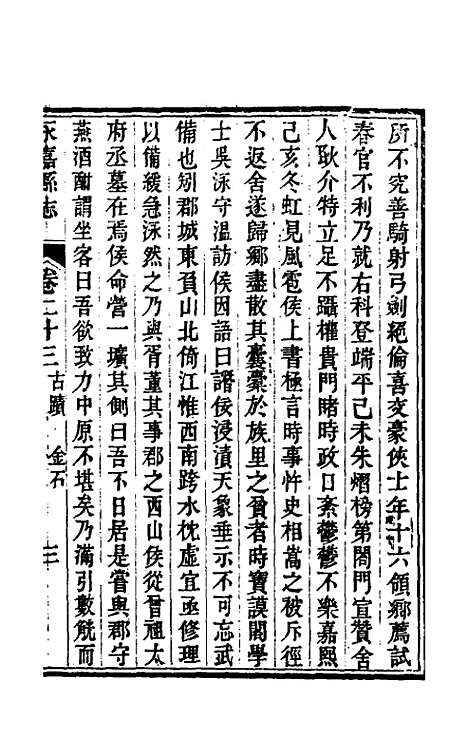 所不究善騎射弓劍絕倫喜交豪俠士年十六領鄉薦試
春官不利乃就右科登端平己未朱熠榜第閤門宣贊舍
人耿介特立足不躡權貴門賭時政日紊鬱鬱不樂嘉熙
己亥冬虹見風雹侯上書極言時事忤史相嵩之被斥徑
不返舍遂歸鄉盡散其囊橐於族里之貧者時寶謨閣學
士吳泳守溫訪侯因語曰譖侯浸漬天象垂示不可忘武
備也矧郡城東負山北倚江惟西南跨水枕虛宜亟修理
以備緩急泳然之乃與胥董其事郡之西山侯從晉祖太
府丞墓在焉侯命營一壙其側曰吾不日居是嘗與郡守
燕酒酣謂坐客曰吾欲致力中原不堪矣乃滿引數觥而
永嘉縣志 卷二十三 古蹟 金石 三